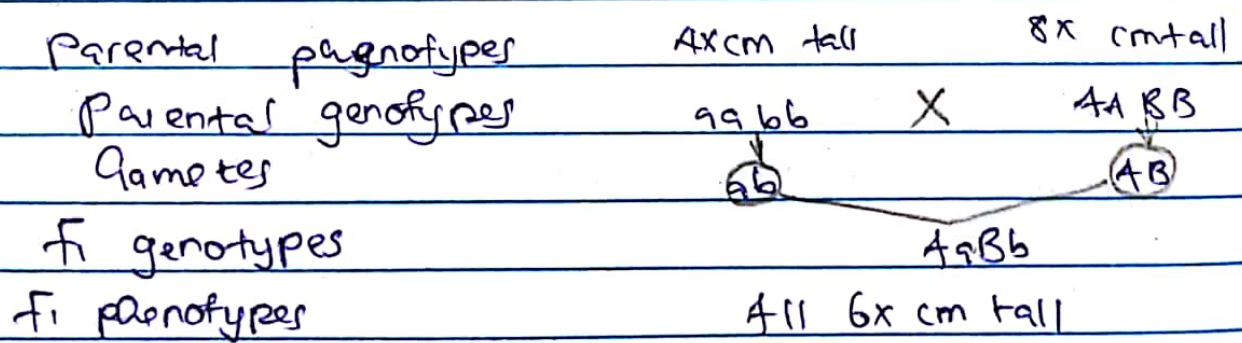 Parental phenotypes 4x cm tall 8x cm tall
Parental genotypes aabb X AABB
Gametes ab AB
F1 genotypes AaBb
F1 phenotypes All 6x cm tall